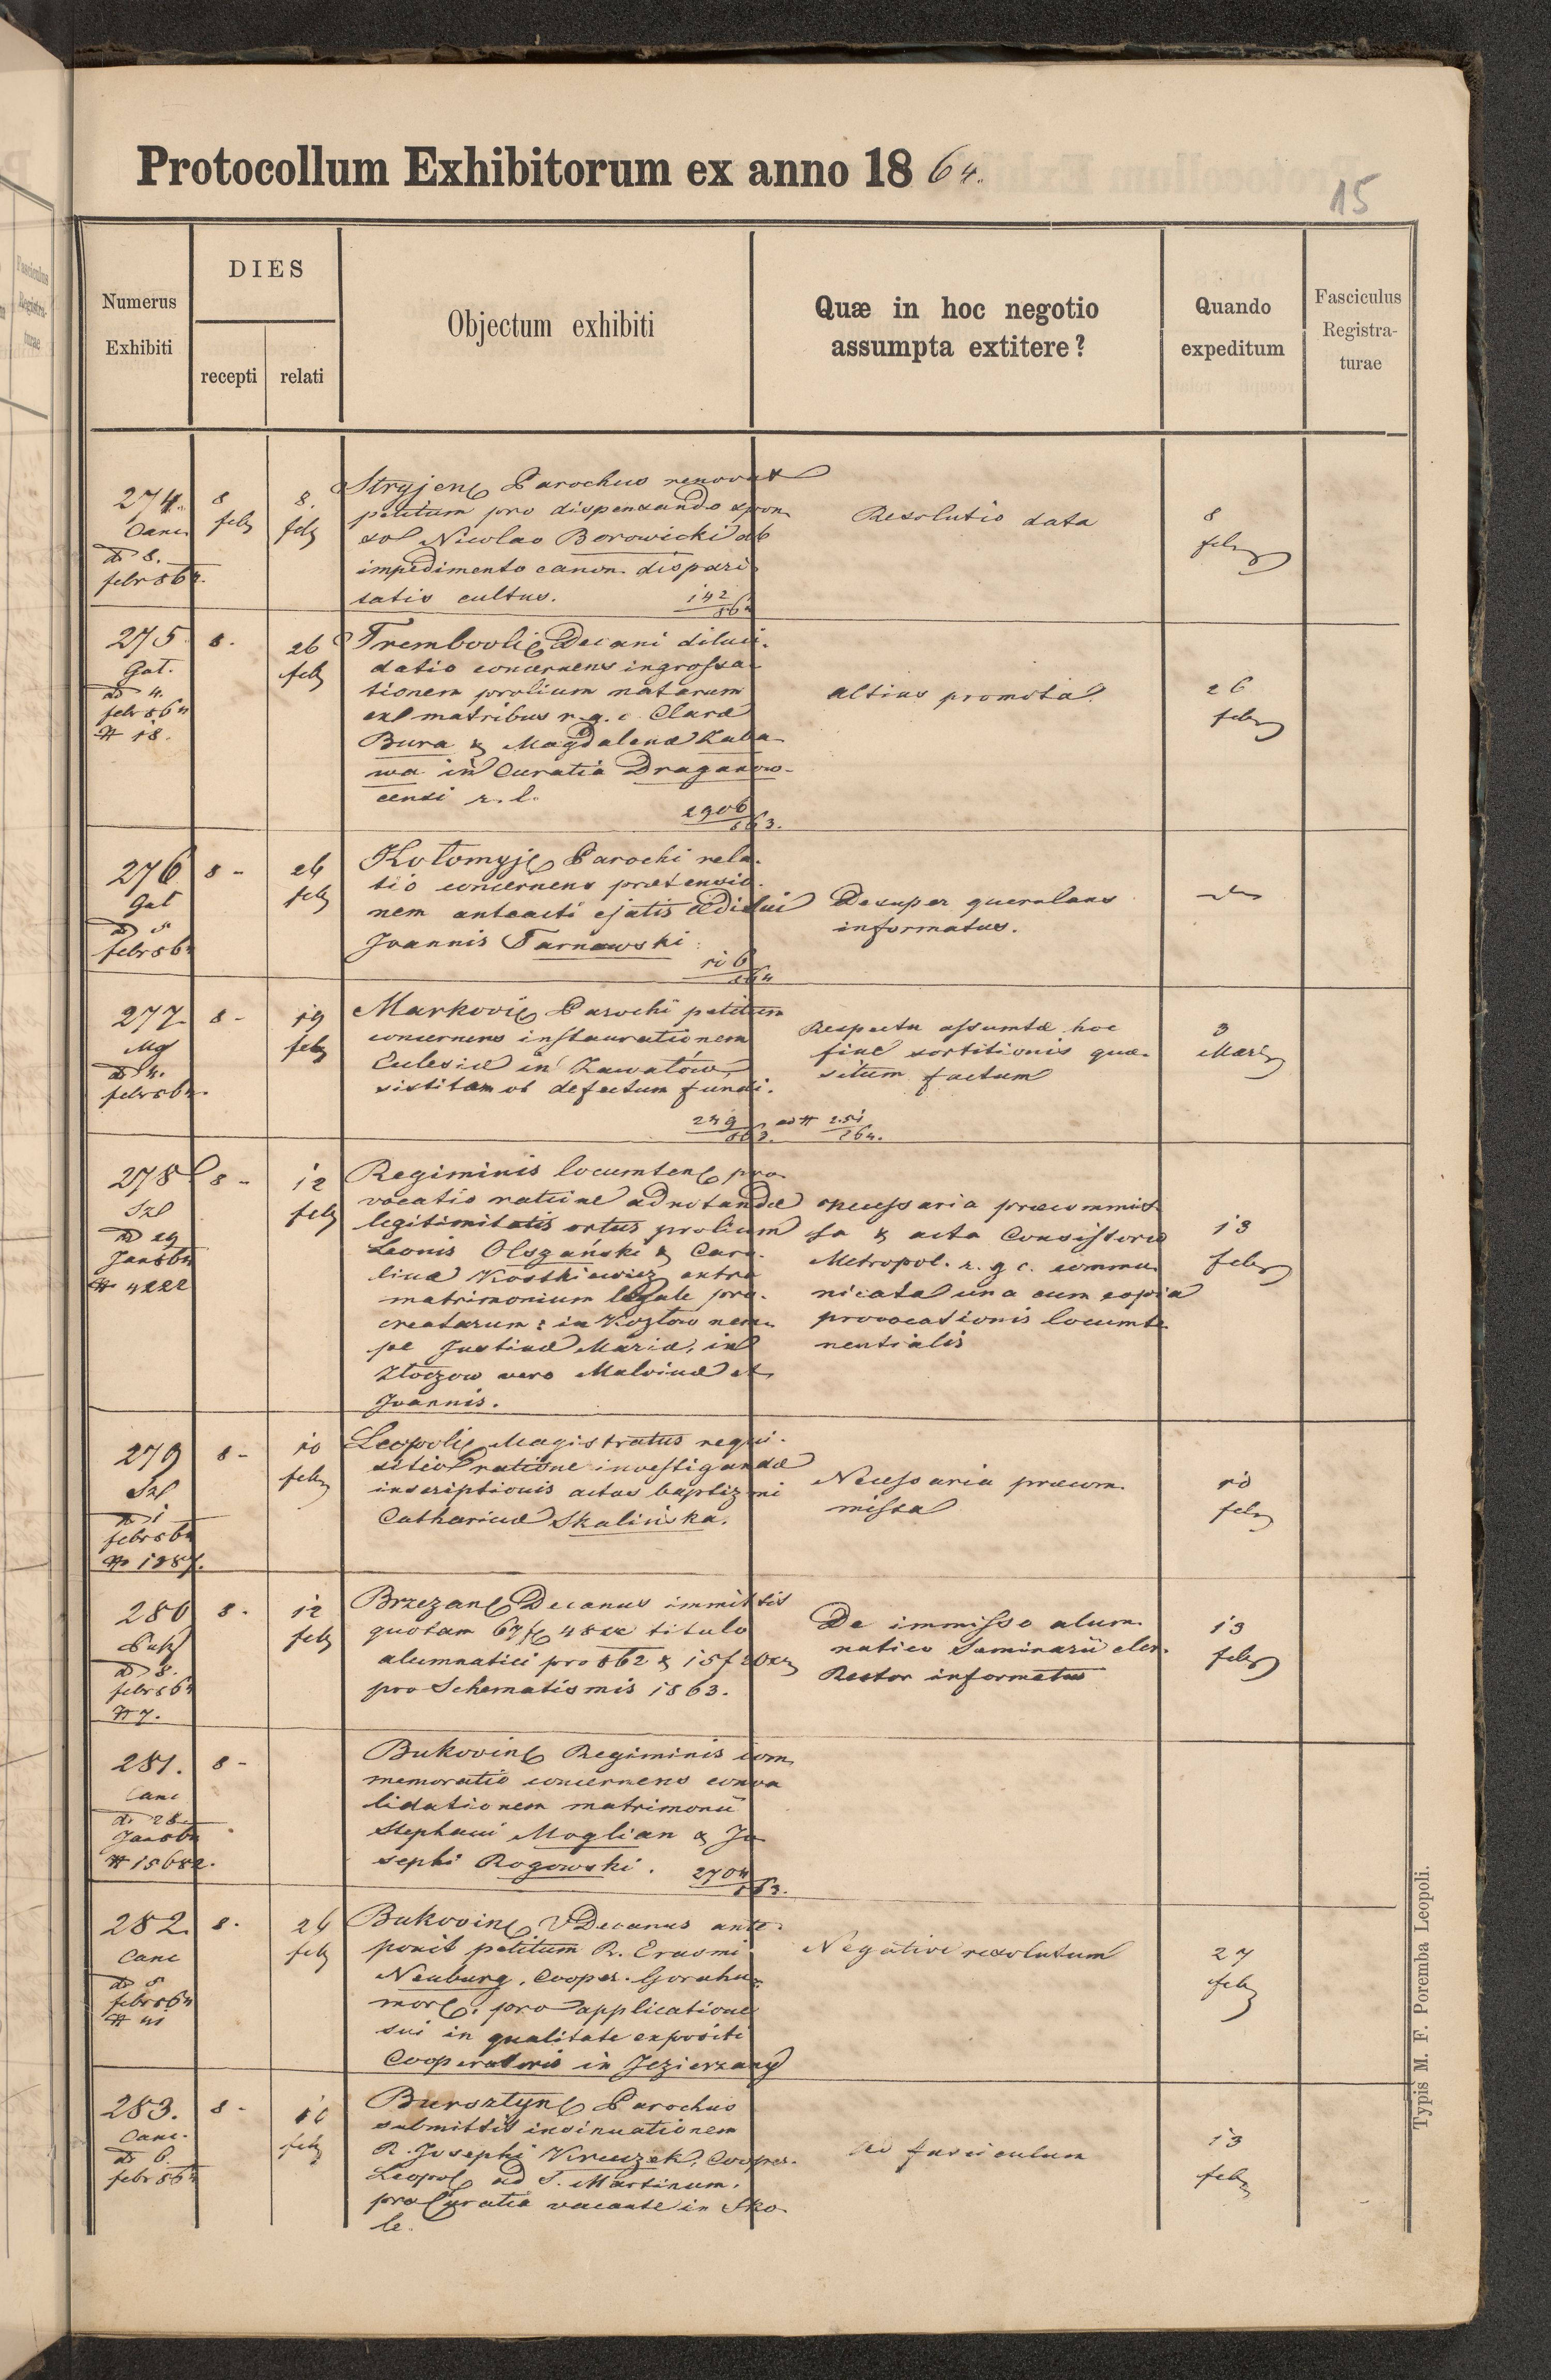 Protocollum Exhibitorum ex anno 1864.
15
Numerus Exhibiti
DIES
recepti
relati
Objectum exhibiti
Quæ in hoc negotio
assumpta extitere?
Quando
expeditum
Fasciculus
Registra-
turae
274.
Canc
dd 8.
febr 864.
8
feb
8.
feb
Stryjen Parochus renovat
petitum pro dispensando spon
so Nicolao Borowicki ab
impedimento canon. dispari
tatis cultus.
142
864
Resolutio data
8
feb
275
Gat.
dd 4.
febr 864
# 18.
8.
26
feb
Trembovli Decani diluci-
datio concernens ingrossa-
tionem prolium natarum
ex matribus r. g. c. Clara
Bura & Magdalena Zaba-
wa in Curatia Draganow-
censi r. l.
2906
863.
altius promota
26
feb
276
Gat
dd 5
febr 864
8 -
26
feb
Kołomyj Parochi rela-
tio concernens prætensio-
nem anteacti ejatis Ædidui
Joannis Tarnawski
864
Desuper querulans
informatus.
277
Mg
dd 4.
febr 864.
8 -
19
feb
Markovi Parochi petitum
concernens instaurationem
Eclesiæ in Zawałów,
sistitam ob defectum fundi.
249
863.
ad # 251
864.
Respectu assumtæ hoc
fine sortitionis quæ-
situm factum
3
Mar
278
Szl
dd 29
Jan 864
# 4222
8 -
12
feb
Regiminis locumten pro-
vocatio ratione adnotandæ
legitimitatis ortus prolium
Leonis Olszański & Caro-
linæ Kostkiewicz extra
matrimonium legale pro-
creatarum: in Kozłow nem-
pe Justinæ Mariæ, in
Złoczow vero Malvinæ et
Joannis.
necessaria præcommis-
sa & acta Consistorio
Metropol. r. g. c. commu-
nicata una cum copia
provocationis locumte
nentialis
13
feb
279
Szl
dd 1
febr 864
# 1287.
8 -
10
feb
Leopoli Magistratus requi-
sitio ratione investigandæ
inscriptionis actus baptizmi
Catharinæ Skalińska.
Necessaria præcom-
missa
10
feb
280
dd 8.
febr 864
# 7.
8.
12
feb
Brzezan Decanus immittit
quotam 67 f 48 xr titulo
alumnatici pro 862 & 15 f 20 xr
pro Schematismis 1863.
De immisso alum-
natico Seminarii cler.
Rector informatus
13
feb
281.
Canc
dd 28
Jan 864
# 15682.
8 -
Bukovin Regiminis com
memoratio concernens conva
lidationem matrimonii
Stephani Moglian & Jo
sephi Rogowski.
2704
863.
282.
Canc
dd 5
febr 864
# 41
8.
24
feb
Bukovin VDecanus ante-
ponit petitum R. Erasmi
Neuburg, Cooper. Gorahu-
mor, pro applicatione
sui in qualitate expositi
Cooperatoris in Jezierzany
Negative resolutum
27
feb
283.
Canc.
dd 6.
febr 864
8 -
10
feb
Bursztyn Parochus
submittit insinuationem
R. Josephi Kruczek, Cooper.
Leopol ad S. Martinum,
pro Curatia vacante in Sko-
le.
ad fasciculum
13
feb
Typis M. F. Poremba Leopoli.